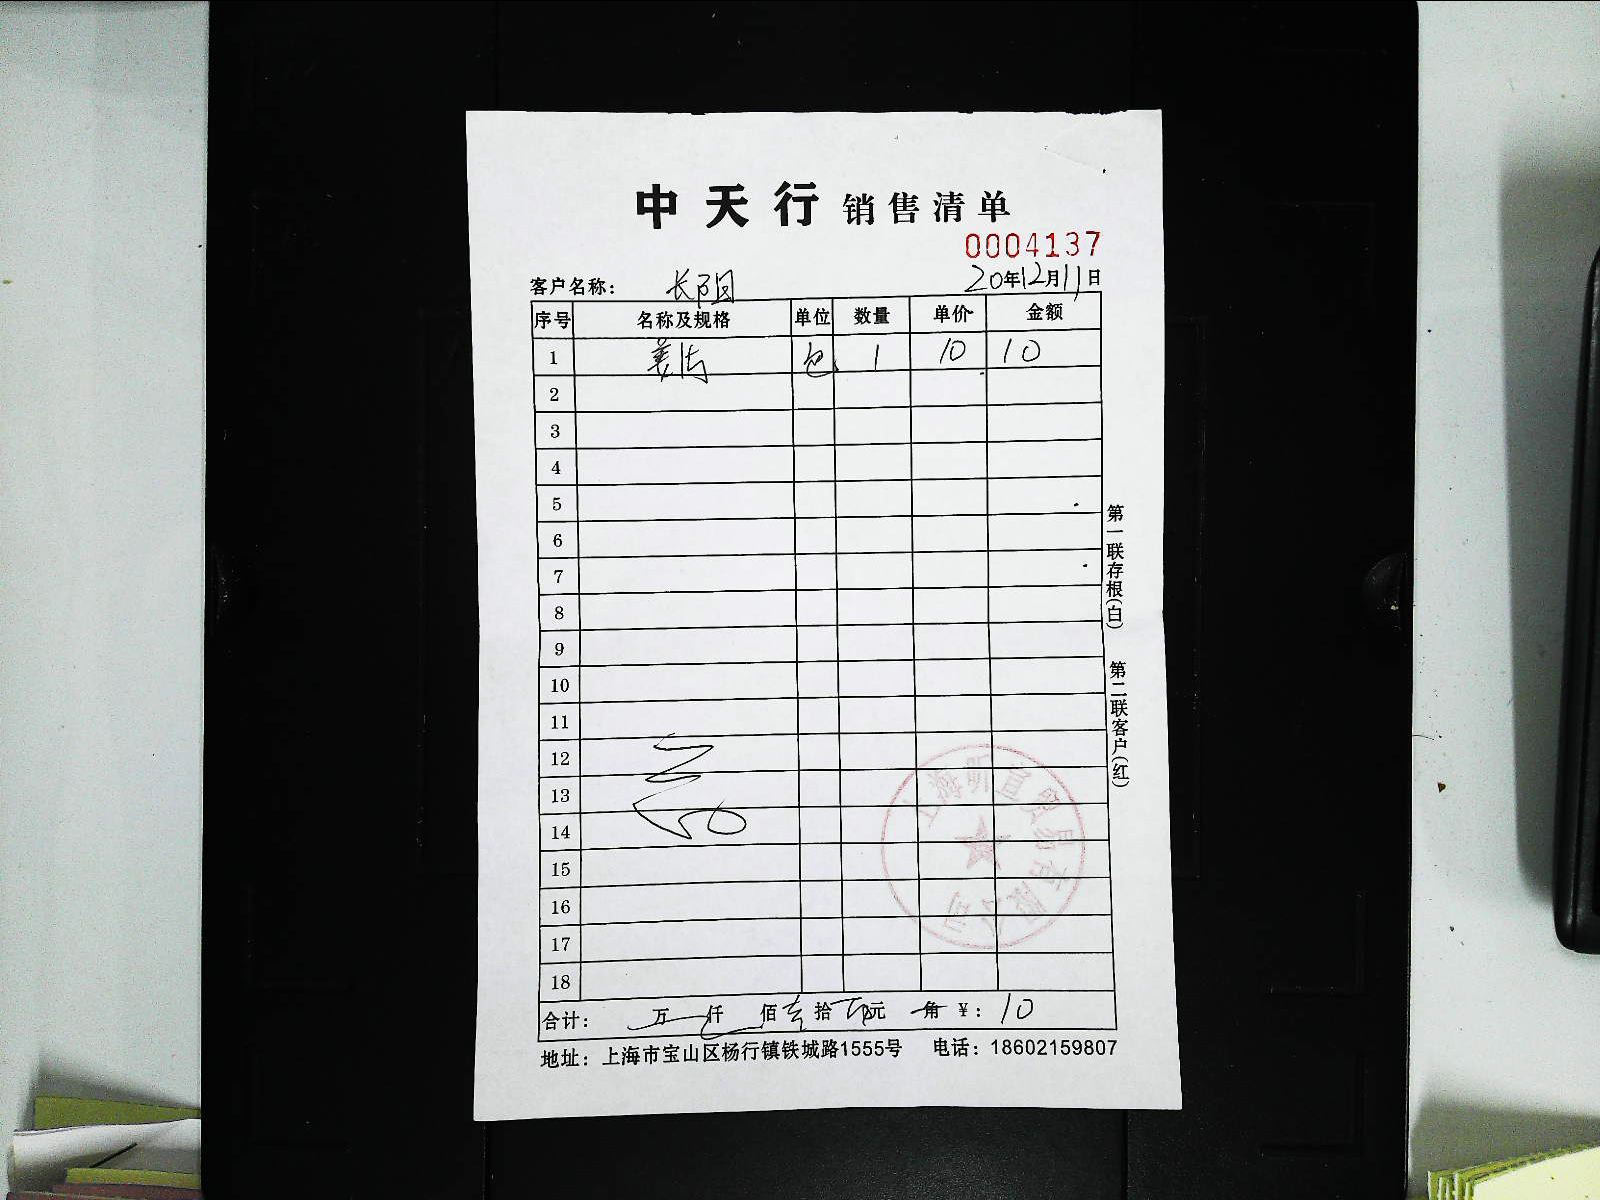 中天行 销售清单
0004137
客户名称： 长阳 20年12月11日
序号 名称及规格 单位 数量 单价 金额
1 美洁 包 1 10 10
2
3
4
5
6
7
8
9
10
11
12
13
14
15
16
17
18
合计： 万 仟 佰 壹 拾 元 角 ￥： 10
地址：上海市宝山区杨行镇铁城路1555号 电话：18602159807
第一联存根(白) 第二联客户(红)
上海昕宣贸易有限公司